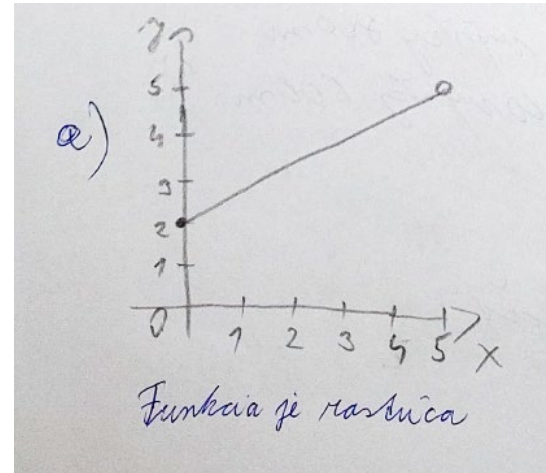 y
5
4
a)
3
2
1
0 1 2 3 4 5 x
Funkcia je rastúca